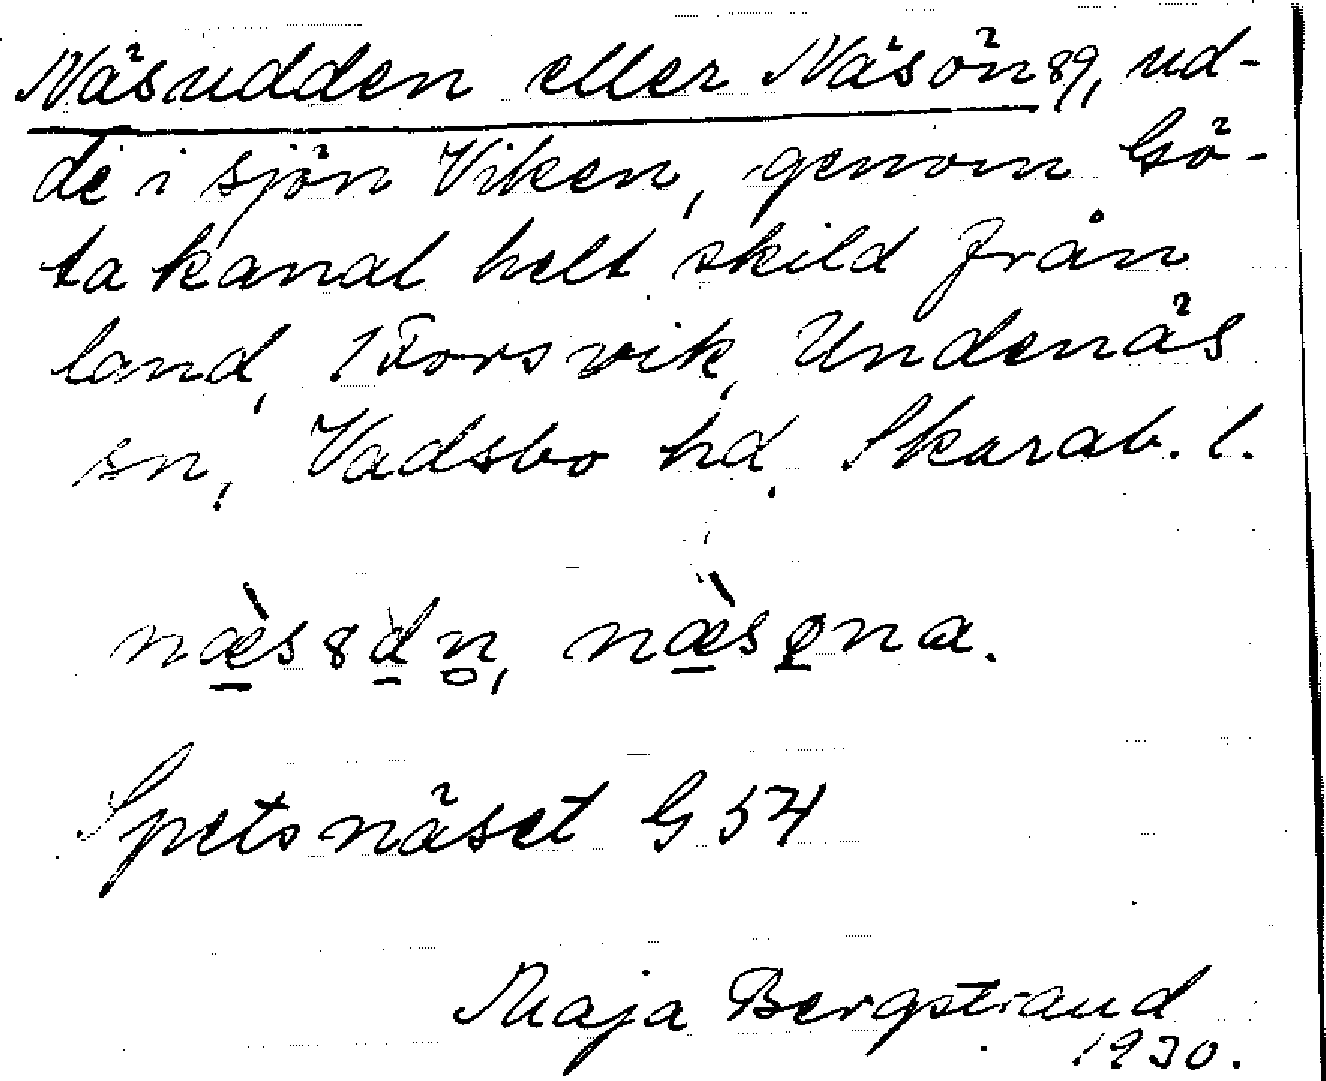 Näsudden eller Näsön 89, ud-
de i sjön Viken, genom Gö-
ta kanal helt skild från
land, 1 Forsvik, Undenäs
sn, Vadsbo hd, Skarab. l.
næ̀s8dn̥, næ̀sǫna.
Spetsnäset G 54
Maja Bergstrand
1930.